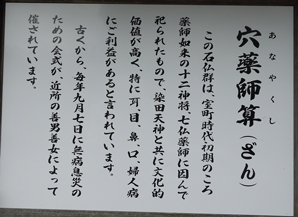 あなやくし
穴薬師算(ざん)
この石仏群は、室町時代初期のころ
薬師如来の十二神将、七仏薬師に因んで
祀られたもので、染田天神と共に文化的
価値が高く、特に、耳、目、鼻、口、婦人病
にご利益があると言われています。
古くから、毎年九月七日に無病息災の
ための会式が、近所の善男善女によって
催されています。